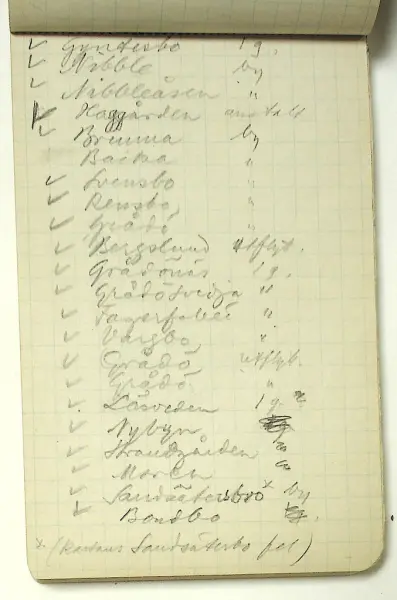 Gyntesbo 1 g.
Nibble by
Nibbleåsen "
Haggården anstalt
Bremma by
Backa "
Svensbo "
Rensbo "
Grådö "
Bergslund utflyt.
Grådönäs 1 g.
Grådötvedja "
"
Vargbo "
Grådö utflyt.
Grådö "
Låsveden 1 g.
Nybyn
Strandgården "
Moren "
Sandsätersbro x by
Bondbo
x. (Kartans Sandsäterbo fel)